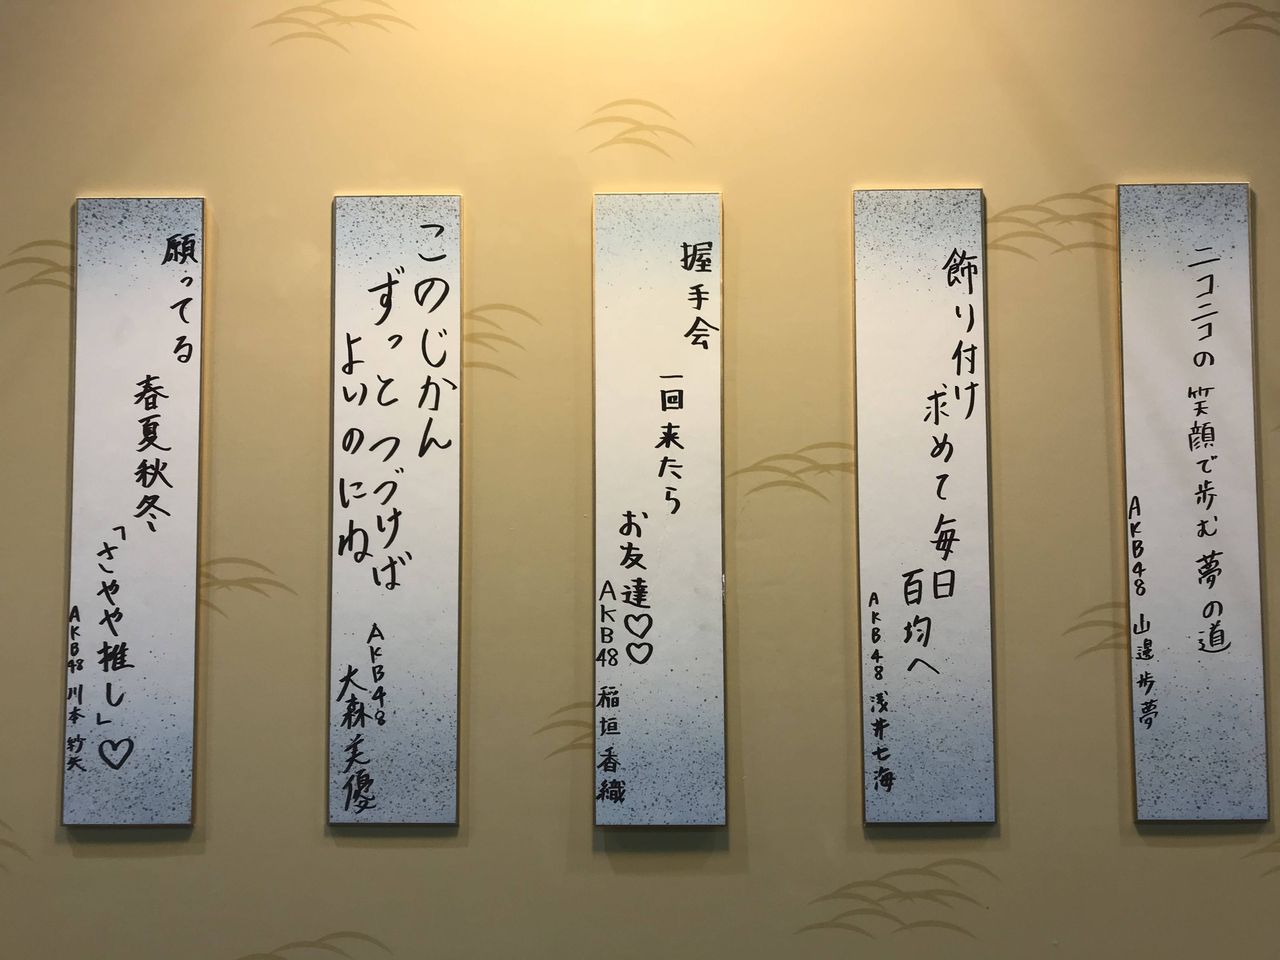 ニコニコの 笑顔で歩む 夢の道
AKB48 山邊歩夢
飾り付け
求めて毎日
百均へ
AKB48 浅井七海
握手会
一回来たら
お友達♡♡
AKB48 稲垣香織
このじかん
ずっとつづけば
よいのにね
AKB48
大森美優
願ってる
春夏秋冬
「さやや推し」♡
AKB48 川本紗矢